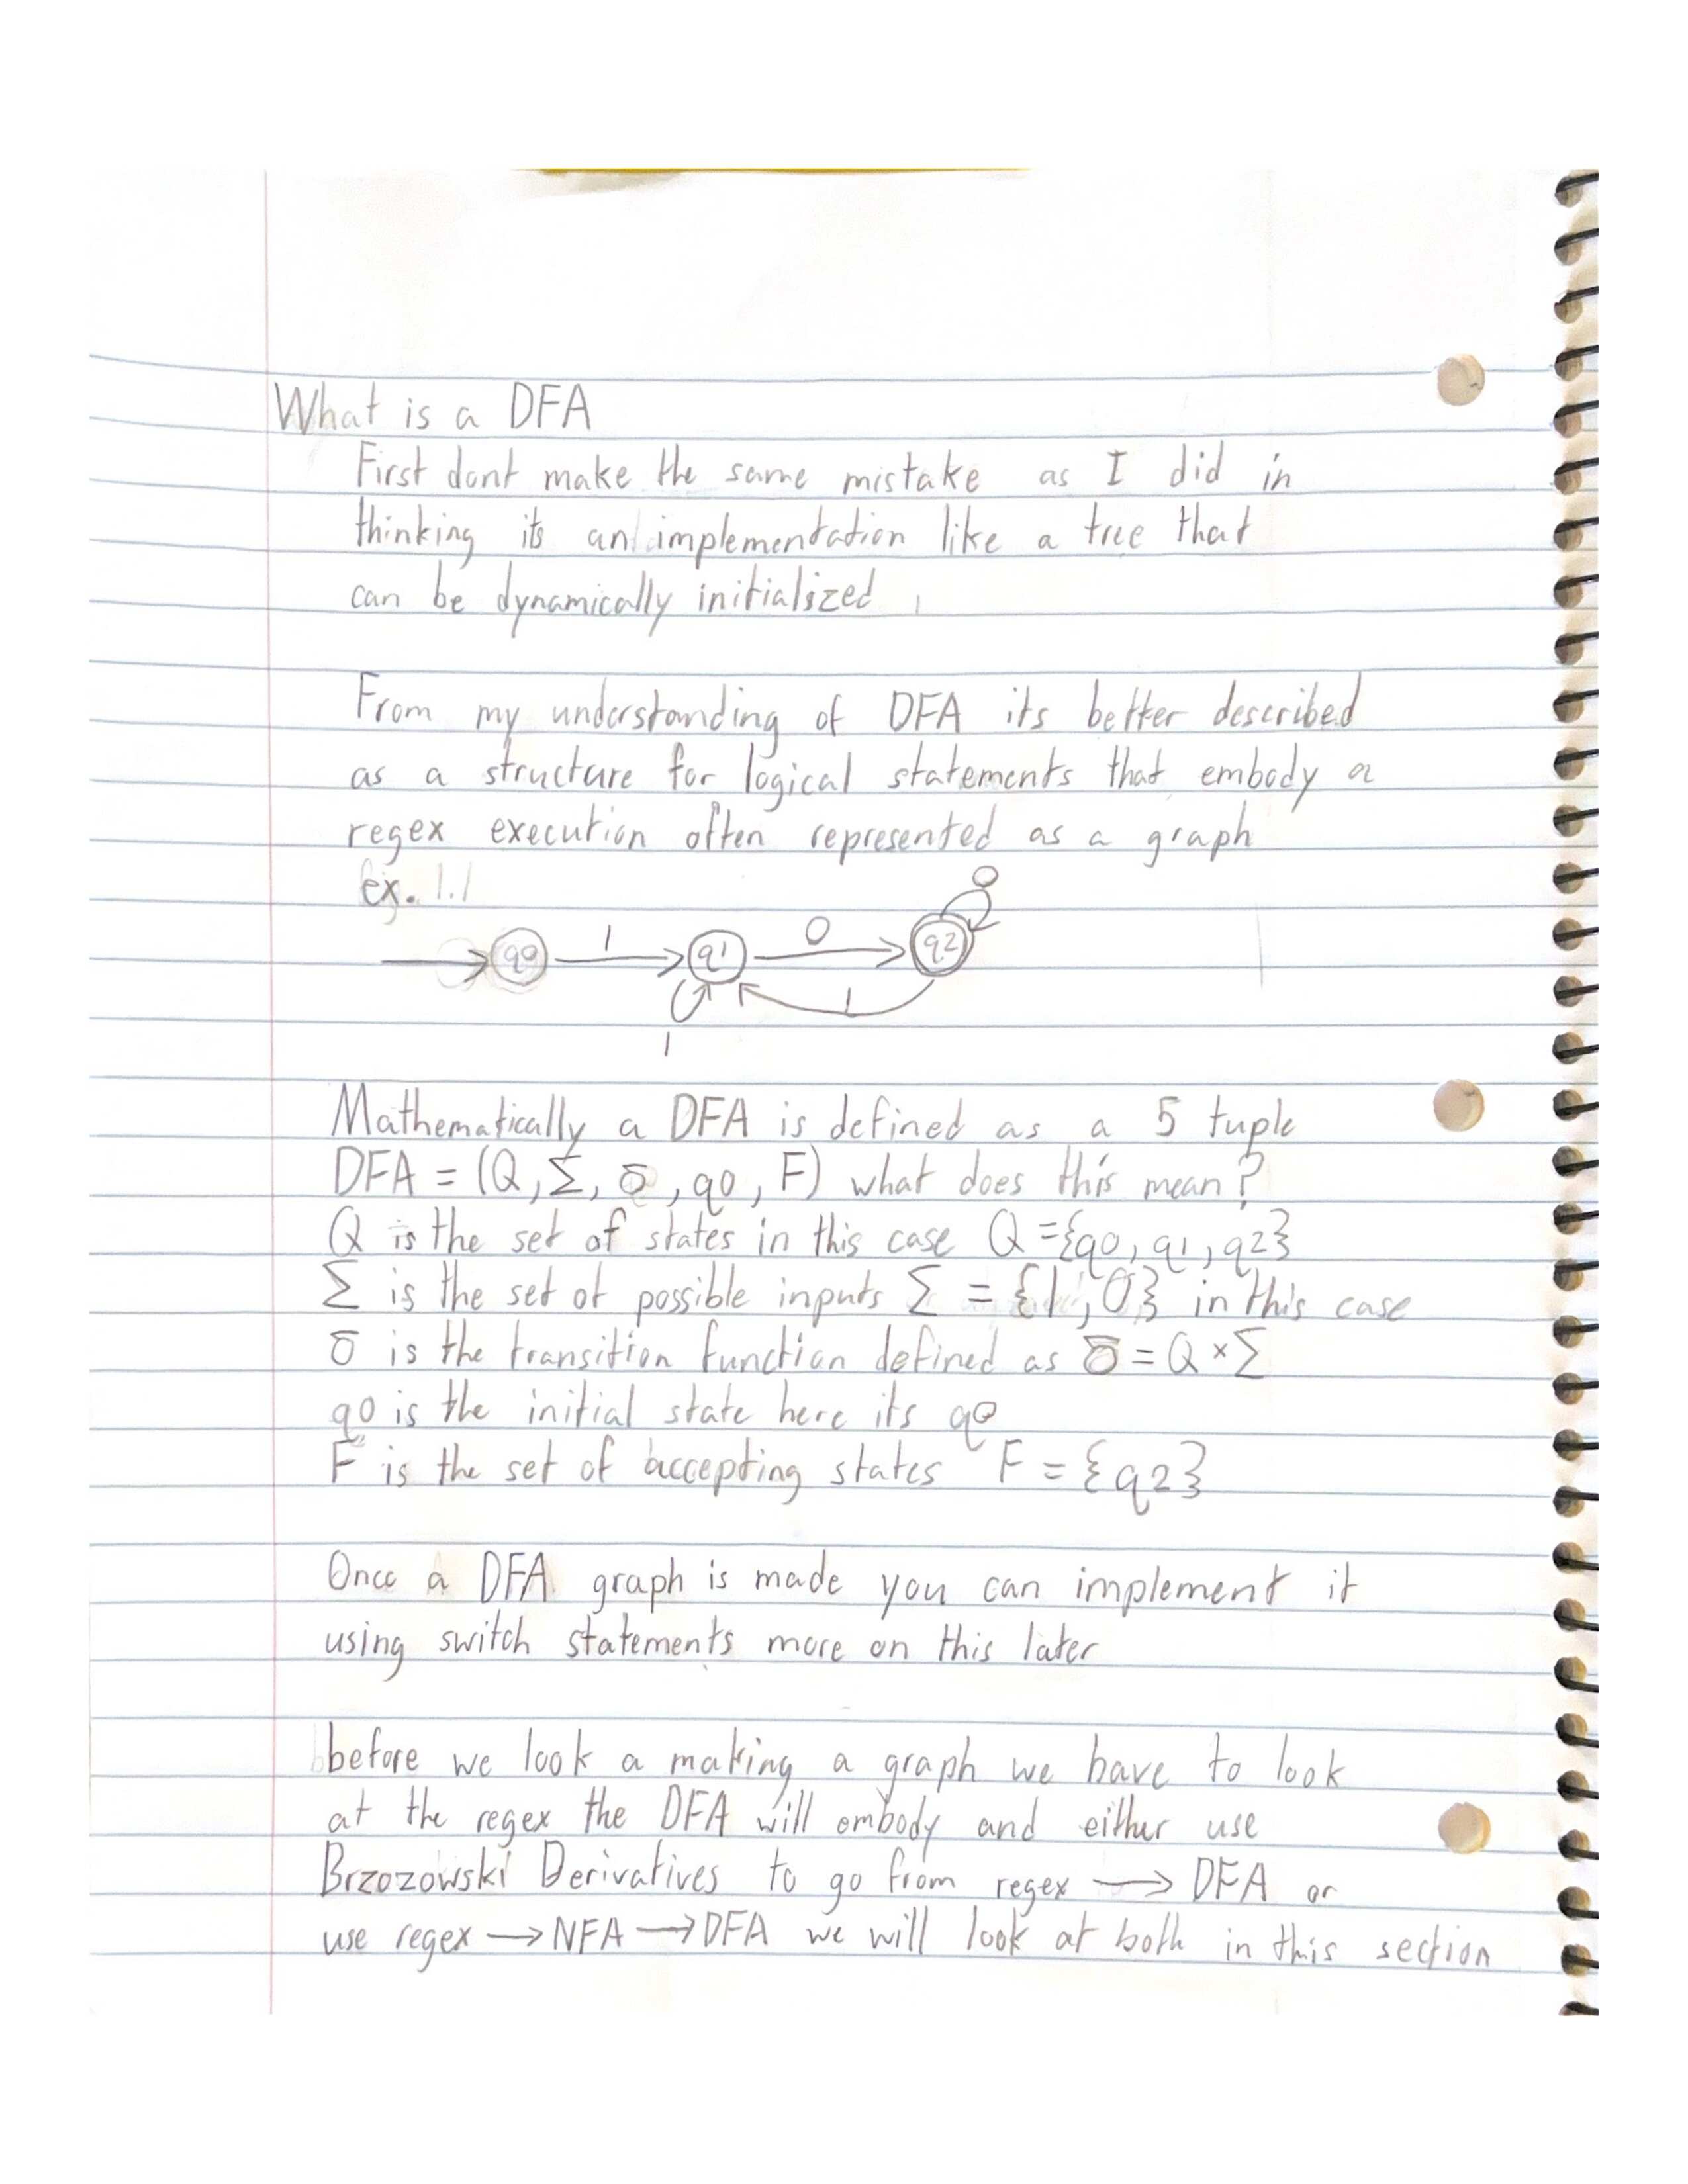 What is a DFA
First dont make the same mistake as I did in
thinking its an implementation like a tree that
can be dynamically initialized
From my understanding of DFA its better described
as a structure for logical statements that embody a
regex execution often represented as a graph
ex. 1.1
0
1 0
q0 q1 q2
1
1
Mathematically a DFA is defined as a 5 tuple
DFA = (Q, Σ, δ, q0, F) what does this mean?
Q is the set of states in this case Q = {q0, q1, q2}
Σ is the set of possible inputs Σ = {1, 0} in this case
δ is the transition function defined as δ = Q × Σ
q0 is the initial state here its q0
F is the set of accepting states F = {q2}
Once a DFA graph is made you can implement it
using switch statements more on this later
before we look a making a graph we have to look
at the regex the DFA will embody and either use
Brzozowski Derivatives to go from regex → DFA or
use regex → NFA → DFA we will look at both in this section